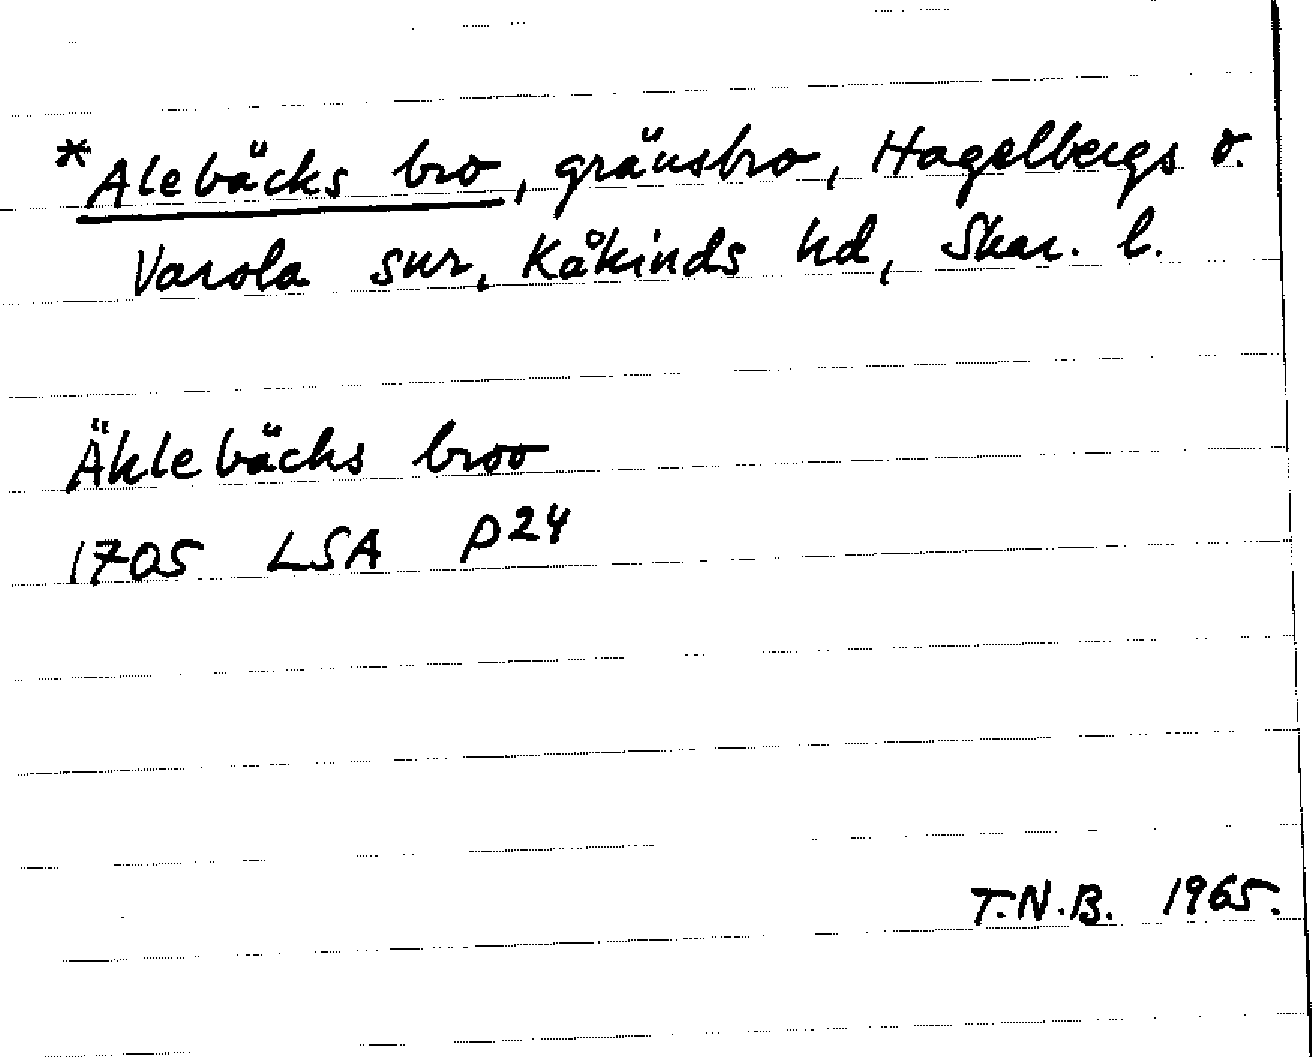 *Alebäcks bro, gränsbro, Hagelbergs o.
Varola snr, Kåkinds hd, Skar. l.
Ählebäcks broo
1705 LSA P24
T.N.B. 1965.